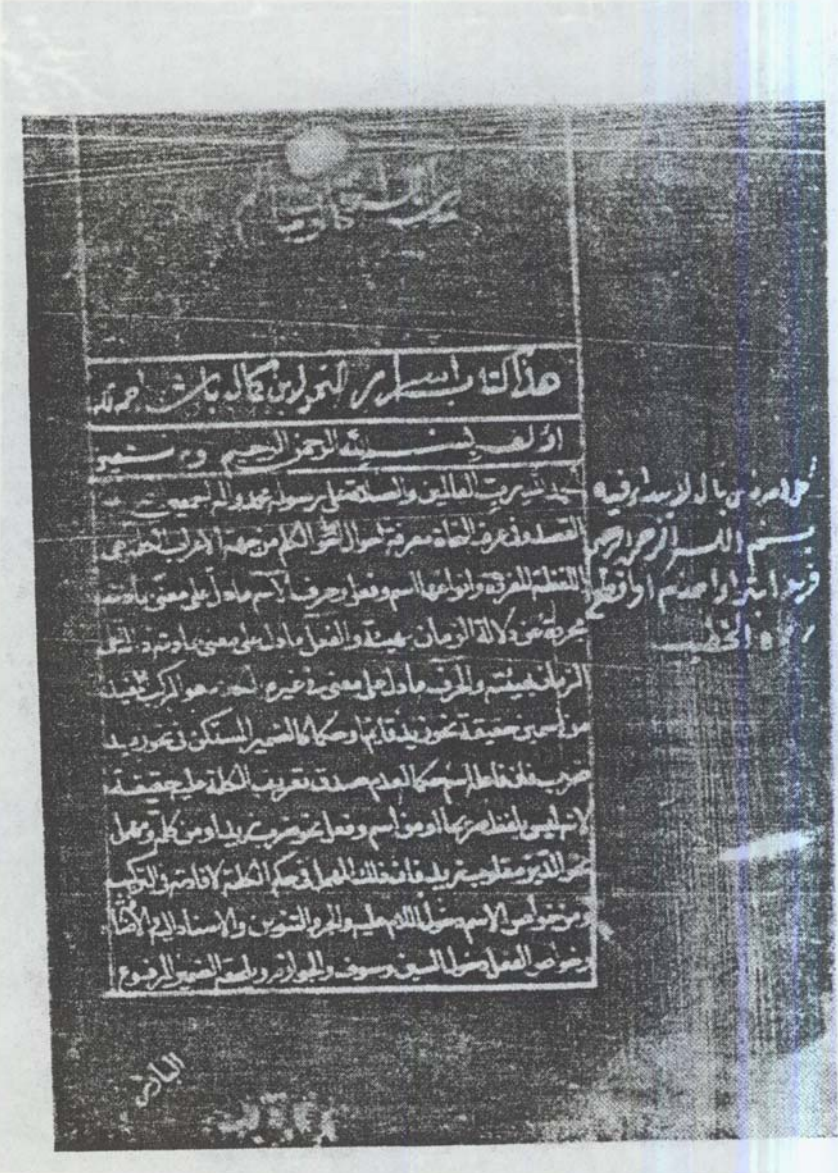 هذا كتاب اسرار النحو لابن كمال باشا
بسم الله الرحمن الرحيم وبه نستعين
حمد لله رب العالمين والصلاة على رسوله محمد واله اجمعين
القصد في عرف النحاة معرفة احوال الكلم من جهة الاعراب الكلمة هي
اللفظة المفردة وانواعها اسم وفعل وحرف الاسم ما دل على معنى بمادته
مجردة عن دلالة الزمان بهيئته والفعل ما دل على معنى بمادته وعلى
الزمان بهيئته والحرف ما دل على معنى في غيره هو المركب المفيد
من اسمين حقيقة نحو زيد قايم او حكما كالضمير المستكن في نحو زيد
ضرب فانه فاعل اسم حكما لعدم صدق تعريف الكلمة عليه حقيقة
لانه ليس بلفظ او من اسم وفعل نحو ضرب زيد او من كلمة ومهمل
نحو الديز مقلوب زيد فان ذلك المهمل في حكم الكلمة لافادته في التركيب
ومن خواص الاسم دخول اللام عليه والجر والتنوين والاسناد اليه والاضافة
وخواص الفعل دخول السين وسوف والجوازم ولحقه الضمير المرفوع
البارز
كل امر ذي بال لا يبداء فيه
بسم الله الرحمن الرحيم
فهو ابتر او اجذم او اقطع
رواه الخطيب